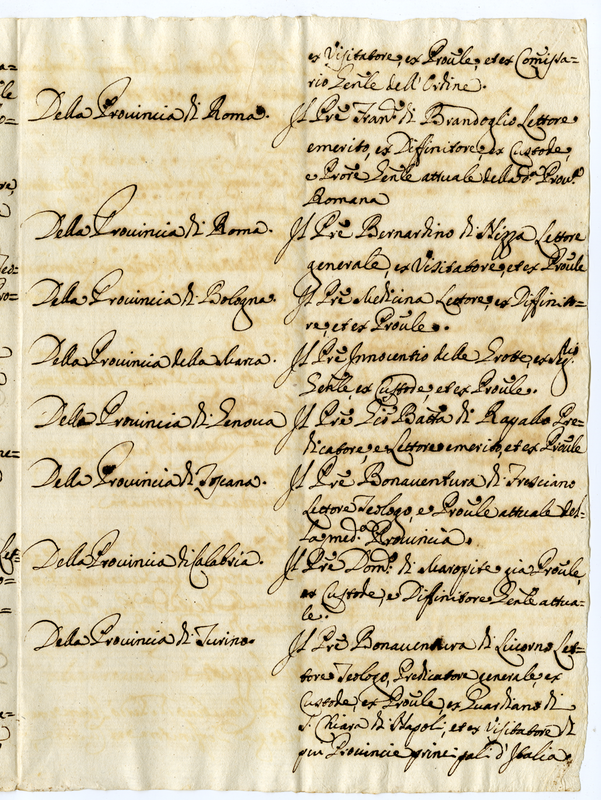 ex Visitatore, ex Prou͠le, et ex Com͠issa-
rio Gen͠le dell'Ordine.
Della Prouincia di Roma. Il Pr͠e Fran.º di Brandoglio Lettore
emerito, ex Diffinitore, ex Custode,
e Pror͠e Gen͠le attuale della d.ª Prou.ª
Romana
Della Prouincia di Roma. Il Pr͠e Bernardino di Nizza Lettore
generale, ex Visitatore, et ex Prou͠le
Della Prouincia di Bologna. Il Pr͠e Medicina Lettore, ex Diffinito-
re, et ex Prou͠le.
Della Prouincia della Marca. Il Pr͠e Innocentio delle Grotte, ex
Gen͠le, ex Custode, et ex Prou͠le.
Della Prouincia di Genoua Il Pr͠e Gio Batt͠a di Rapallo Pre-
dicatore, e Lettore emerito, et ex Prou͠le
Della Prouincia di Toscana. Il Pr͠e Bonauentura di Fresciano
Lettore Teologo, e Prou͠le attuale del-
la med.ª Prouincia.
Della Prouincia di Calabria. Il Pr͠e Dom.º di Maropite gia Prou͠le,
ex Custode, e Diffinitore Gen͠le attua-
le.
Della Prouincia di Turino. Il Pr͠e Bonauentura di Liuorno Let-
tore Teologo, Predicatore generale, ex
Custode, ex Prou͠le, ex Guardiano di
S. Chiara di Napoli, et ex Visitatore di
piu Prouincie principali d'Italia.